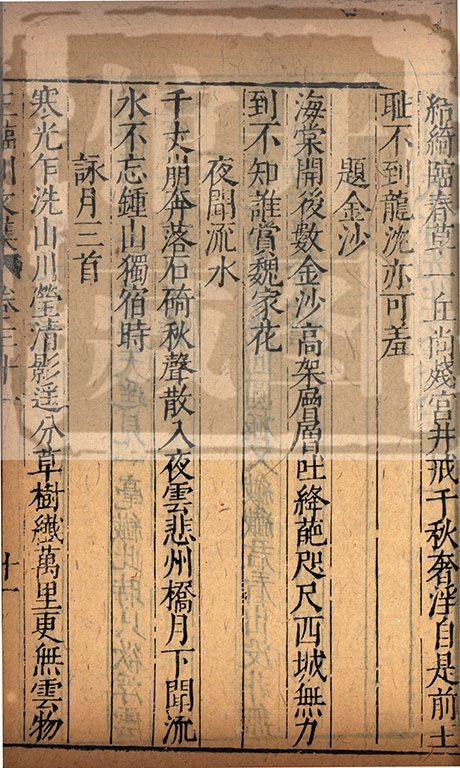 結綺臨春草一丘尚殘宮井戒千秋奢淫自是前王
耻不到龍沈亦可羞
題金沙
海棠開後數金沙高架層層吐絳葩咫尺西城無力
到不知誰賞魏家花
夜聞流水
千丈崩奔落石碕秋聲散入夜雲悲州橋月下聞流
水不忘鍾山獨宿時
詠月三首
寒光乍洗山川瑩清影遥分草樹纖萬里更無雲物
王臨川文集 卷三十一 十一